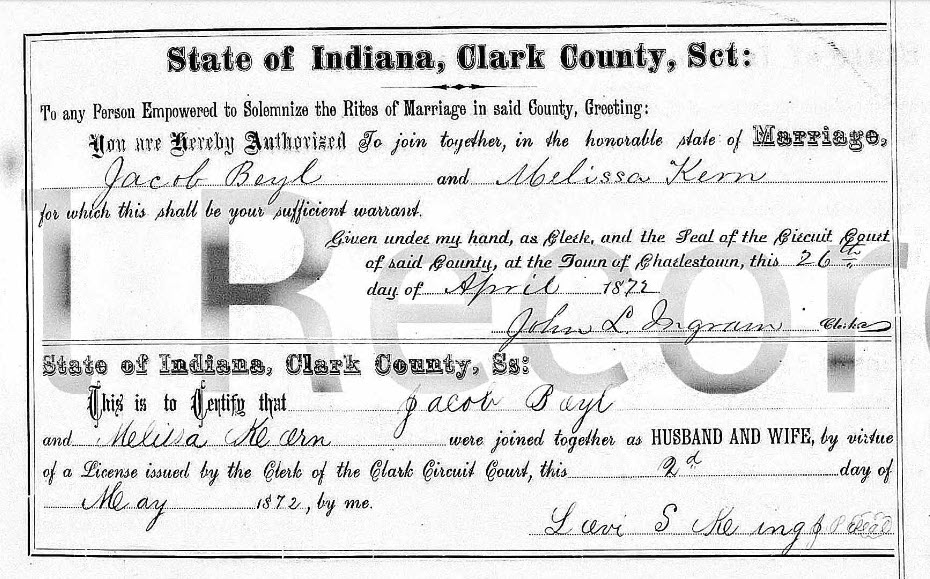 State of Indiana, Clark County, Sct:
To any Person Empowered to Solemnize the Rites of Marriage in said County, Greeting:
You are Hereby Authorized To join together, in the honorable state of Marriage,
Jacob Beyl and Melissa Kern
for which this shall be your sufficient warrant.
Given under my hand, as Clerk, and the Seal of the Circuit Court
of said County, at the Town of Charlestown, this 26th
day of April 1872
John L. Ingram Clerk
State of Indiana, Clark County, Ss:
This is to Certify that Jacob Bayl
and Melissa Kearn were joined together as HUSBAND AND WIFE, by virtue
of a License issued by the Clerk of the Clark Circuit Court, this 2d day of
May 1872, by me.
Levi S King J P Seal
Record